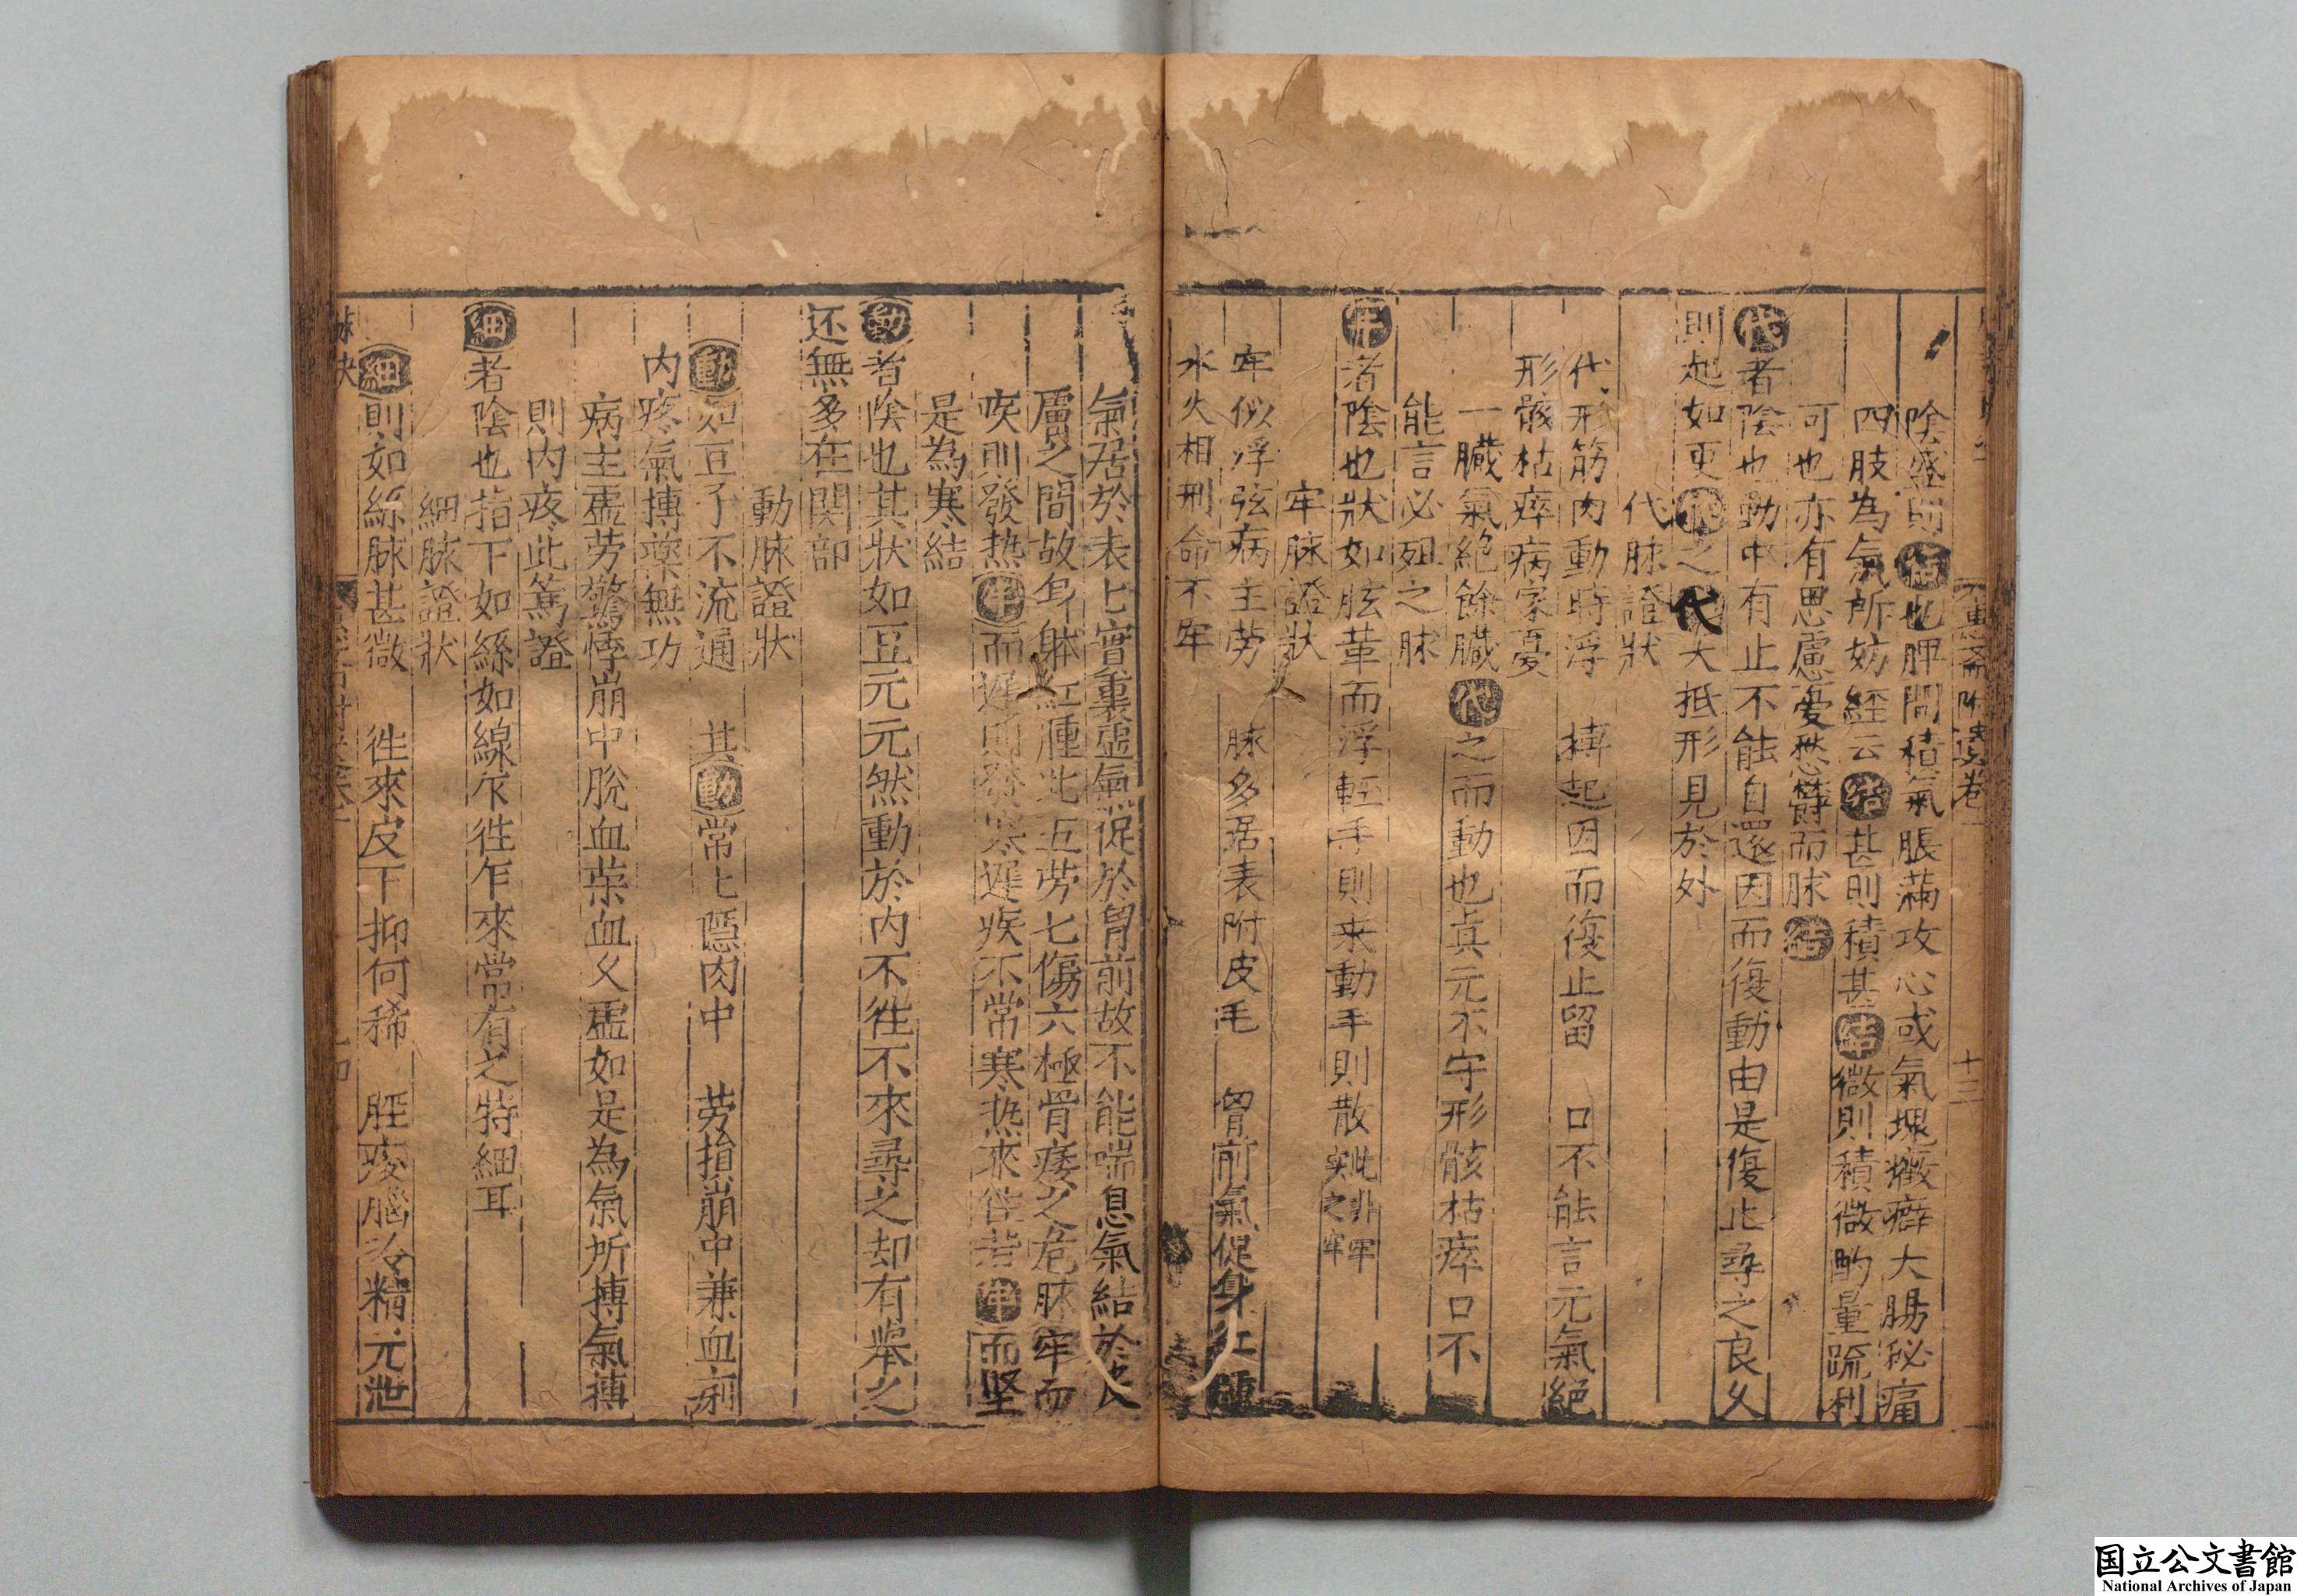 陰盛則結也脾間積氣脹滿攻心或氣塊癥癖大腸秘痛
四肢為氣所妨經云結甚則積甚結微則積微酌量疏利
可也亦有思慮憂愁欝而脉結
代者陰也動中有止不能自還因而復動由是復止尋之良久
則起如更代之代大抵形見於外
代脉證狀
代形筋肉動時浮　搏起因而復止留　口不能言元氣絕
形骸枯瘁病家憂
一臟氣絕餘臟代之而動也真元不守形骸枯瘁口不
能言必殂之脉
牢者陰也狀如胘葷而浮輕手則来動手則散此非牢實之牢
牢脉證狀
牢似浮弦病主劳　脉多居表附皮毛　胷前氣促身紅腫
水火相刑命不牢
氣居於表匕實裏虛氣促於胷前故不能喘息氣結於皮
膚之間故身躰紅腫此五劳七傷六極骨痿之危脉牢而
疾則發热牢而遲則發寒遲疾不常寒热來往若牢而坚
是為寒結
動者陰也其狀如豆元元然動於内不徃不來尋之却有舉之
还無多在関部
動脉證狀
動如豆子不流通　其動常匕隱肉中　劳損崩中兼血痢
内疼氣搏薬無功
病主虛劳驚悸崩中脫血荣血乂虛如是為氣所搏氣搏
則内疼此篤證
細者陰也指下如絲如線乍徃乍來常有之特細耳
細脉證狀
細則如絲脉甚微　徃來皮下抑何稀　脛痠腦冷精元泄
脉决
十三
国立公文書館
National Archives of Japan